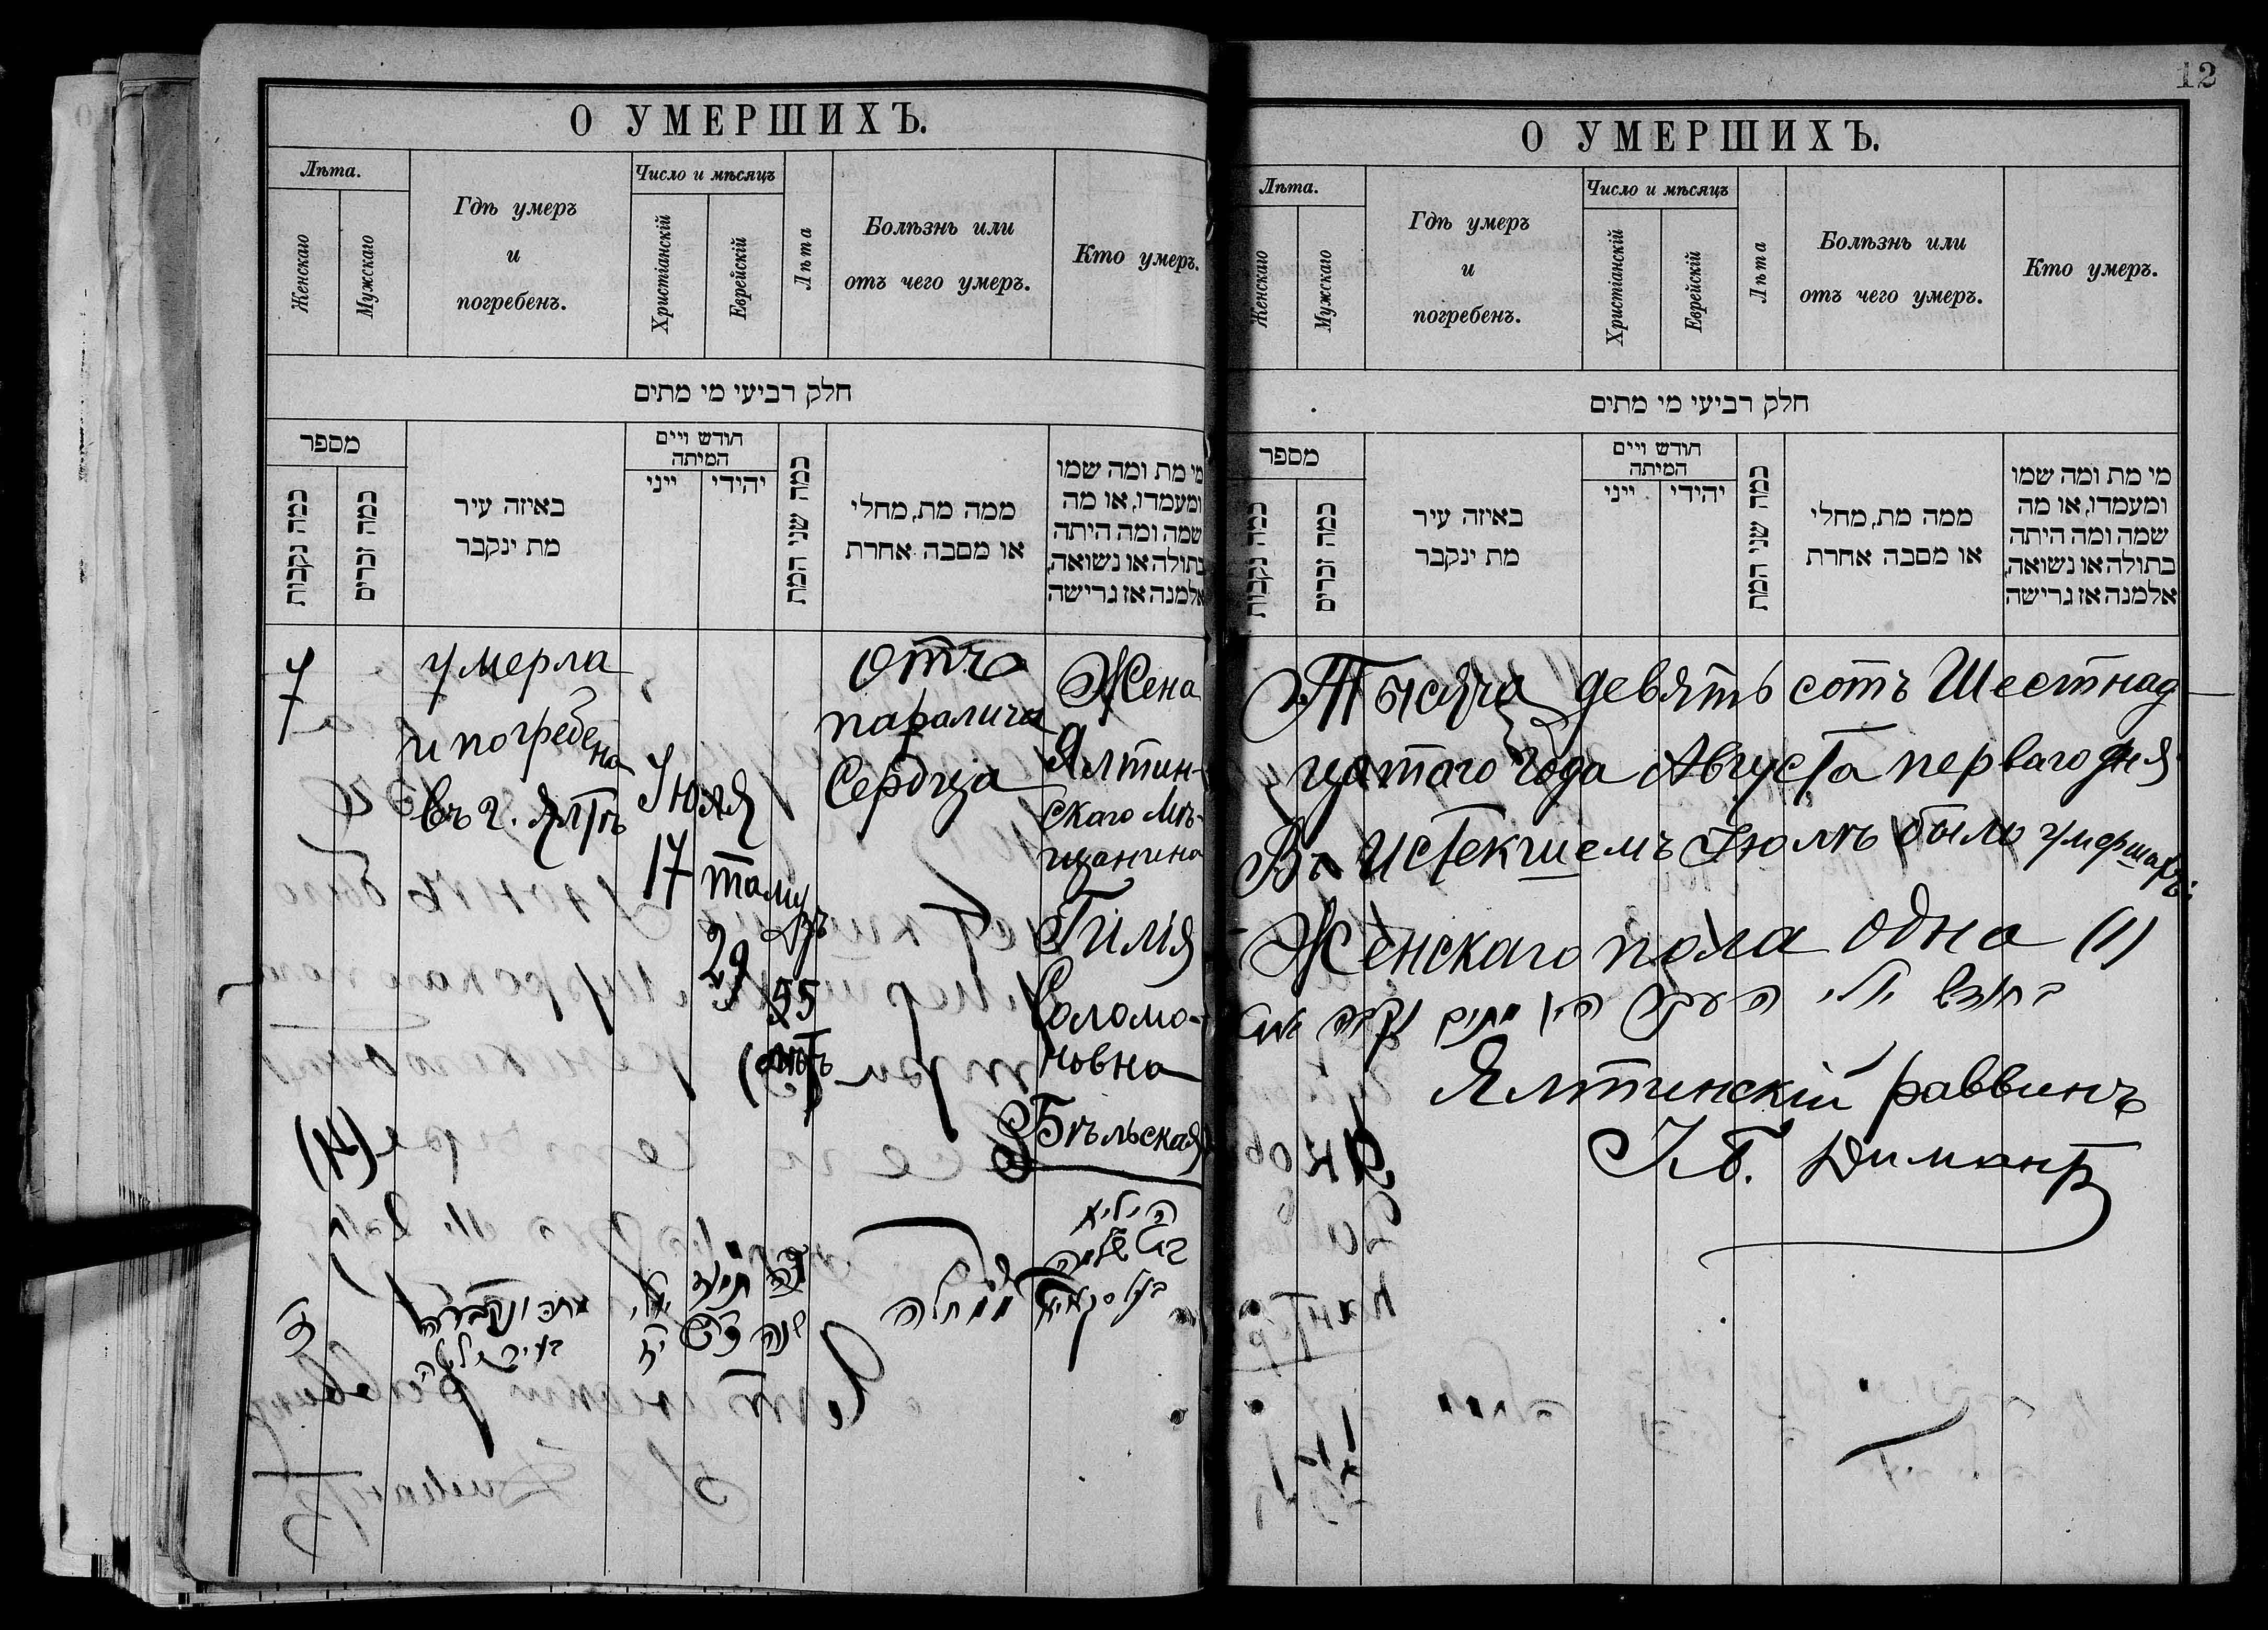 О УМЕРШИХЪ.
Лѣта.
Женскаго
Мужскаго
Гдѣ умеръ
и
погребенъ.
Число и мѣсяцъ
Христіанскій
Еврейскій
Лѣта
Болѣзнь или
отъ чего умеръ.
Кто умеръ.
חלק רביעי מי מתים
מספר
כמה נקבות
כמה זכרים
באיזה עיר
מת ינקבר
חודש ויים
המיתה
ייני
יהודי
כמה שני המת
ממה מת, מחלי
או מסבה אחרת
מי מת ומה שמו
ומעמדו, או מה
שמה ומה היתה
בתולה או נשואה,
אלמנה אז גרישה
7
умерла
и погребена
въ г. Ялтѣ
Іюля
17
тамузъ
29
55
лѣтъ
Отъ
паралича
Сердца
Жена
Ялтин-
скаго Мѣ-
щанина
Гилія
Соломо-
новна
Бѣльская
מתה ונקברה
יולי
תמוז
נה
שנה
ממחלה
הילא
בת שלמה
12
О УМЕРШИХЪ.
Лѣта.
Женскаго
Мужскаго
Гдѣ умеръ
и
погребенъ.
Число и мѣсяцъ
Христіанскій
Еврейскій
Лѣта
Болѣзнь или
отъ чего умеръ.
Кто умеръ.
חלק רביעי מי מתים
מספר
כמה נקבות
כמה זכרים
באיזה עיר
מת ינקבר
חודש ויים
המיתה
ייני
יהודי
כמה שני המת
ממה מת, מחלי
או מסבה אחרת
מי מת ומה שמו
ומעמדו, או מה
שמה ומה היתה
בתולה או נשואה,
אלמנה אז גרישה
Тысяча девять сотъ Шестнад
цатаго года Августа перваго дня
Въ Истекшемъ Іюлѣ было умершихъ:
Женскаго пола одна (1)
בחודש יולי העבר היו מתים נקבה אחת
Ялтинскій раввинъ
І. Б. Димантъ